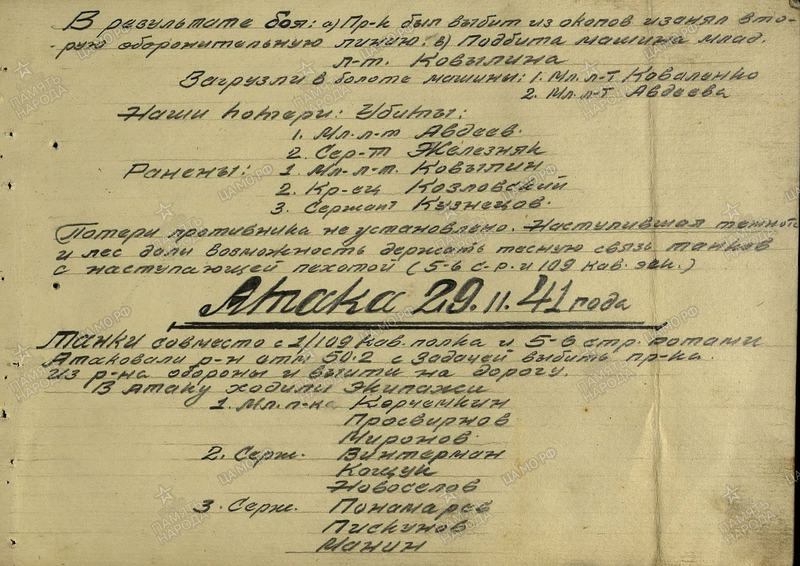 В результате боя: а) Пр-к был выбит из окопов и занял вто-
рую оборонительную линию: в) Подбита машина млад.
л-т. Ковылина
Загрузли в болоте машины: 1. Мл. л-т Коваленко
2. Мл. л-т Авдеева
Наши потери: Убиты:
1. Мл. л-т Авдеев.
2. Сер-т Железняк
Ранены: 1. Мл-л-т. Ковылин
2. Кр-ец Козловский
3. Сержант Кузнецов.
Потери противника не установлено. Наступившая темнота
и лес дали возможность держать тесную связь танков
с наступающей пехотой (5-6 с-р. и 109 кав.)
Атака 29.11.41 года
Танки совместо с 1/109 кав. полка и 5-6 стр. ротами
Атаковали р-н отм 50.2 с задачей выбить пр-ка.
из р-на обороны и выити на дорогу.
В атаку ходили экипажи
1. Мл. л-на Корчемкин
Просвирнов
Миронов.
2. Серж. Винтерман
Кащук
Новоселов
3. Серж. Понамарев
Пискунов
Манин
ПАМЯТЬ НАРОДА
ЦАМО.РФ